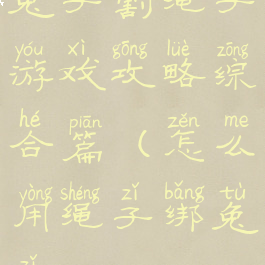 兔子割绳子
yóu xì gōng lüè zōng
游戏攻略综
hé piān zěn me
合篇（怎么
yòng shéng zǐ bǎng tù
用绳子绑兔
zǐ